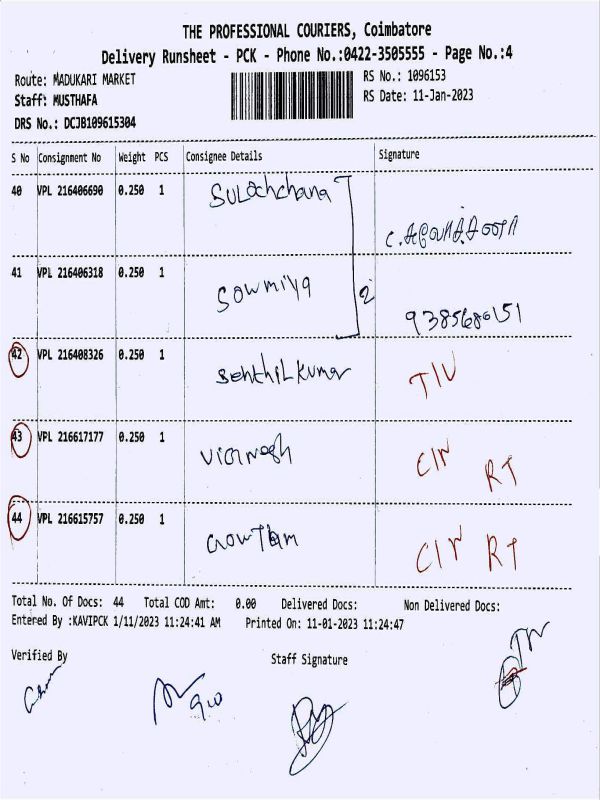 THE PROFESSIONAL COURIERS, Coimbatore
Delivery Runsheet - PCK - Phone No.:0422-3505555 - Page No.:4
Route: MADUKARI MARKET
RS No.: 1096153
Staff: MUSTHAFA
RS Date: 11-Jan-2023
DRS No.: DCJB109615304
S No Consignment No Weight PCS Consignee Details Signature
40 VPL 216406690 0.250 1 Sulochchana
41 VPL 216406318 0.250 1 Sowmiya 2 9385686151
42 VPL 216408326 0.250 1 Senthilkumar
43 VPL 216617177 0.250 1 Vicinesh RT
44 VPL 216615757 0.250 1 Gowtham RT
Total No. Of Docs: 44 Total COD Amt: 0.00 Delivered Docs: Non Delivered Docs:
Entered By :KAVIPCK 1/11/2023 11:24:41 AM Printed On: 11-01-2023 11:24:47
Verified By Staff Signature